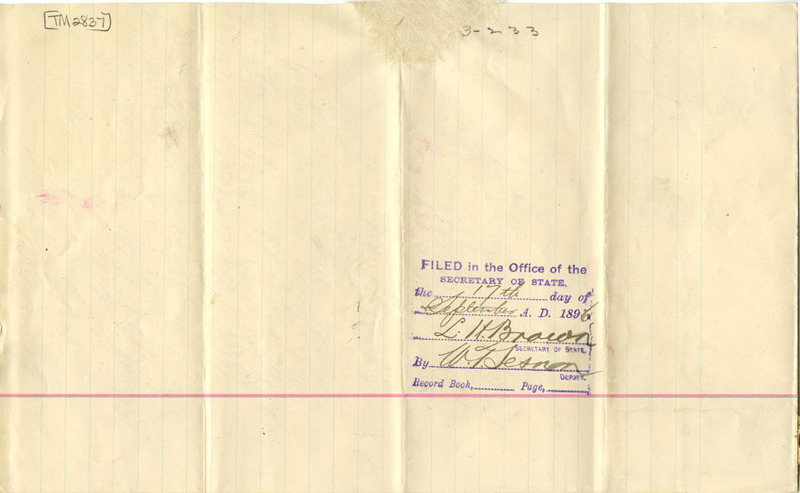 TM2837
3-233
FILED in the Office of the
SECRETARY OF STATE.
the 17th day of
September A. D. 1896
L. H. Brown
SECRETARY OF STATE
By
DEPUTY.
Record Book, Page,